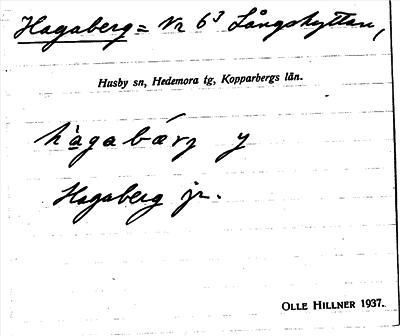 Hagaberg = Nr 6³ Långshyttan,
Husby sn, Hedemora tg, Kopparbergs län.
Hagaberg jr.
OLLE HILLNER 1937.